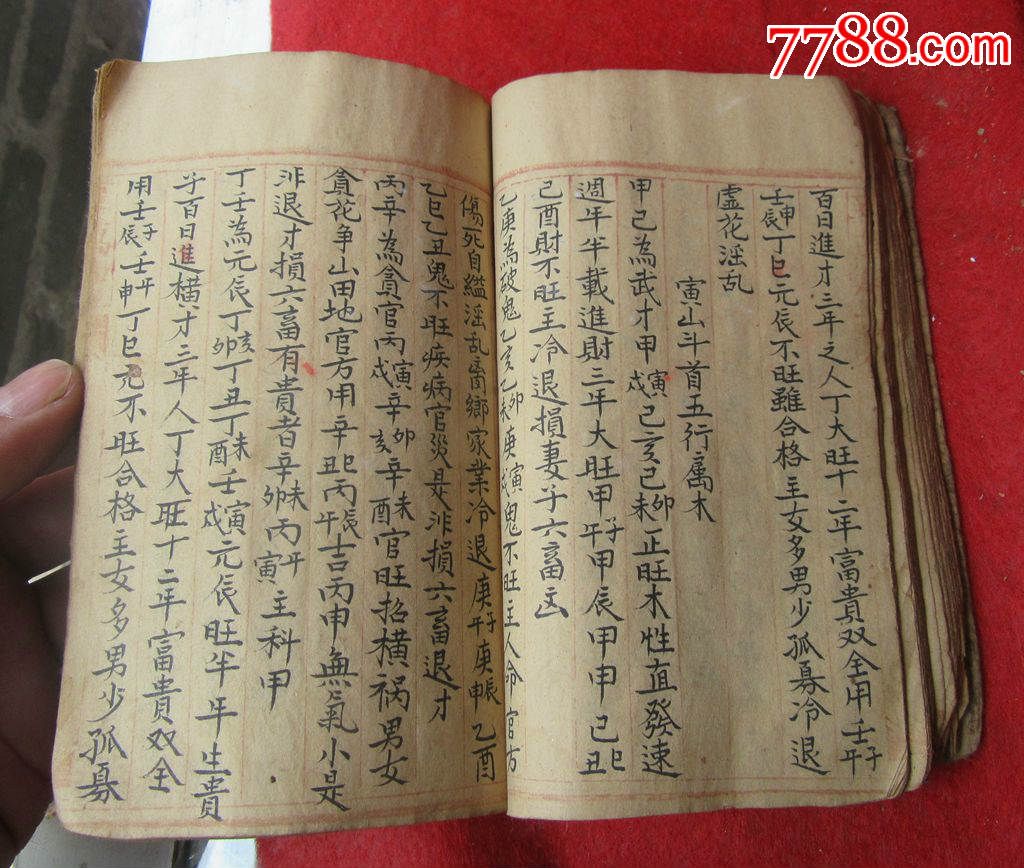 7788.com
百日進才三年之人丁大旺十二年富貴双全用壬子午
壬申辰丁巳元辰不旺雖合格主女多男少孤寡冷退
虚花淫乱
寅山斗首五行属木
甲己為武才甲寅戌己亥己卯未一正旺木性直發速
週年半載進財三年大旺甲子午甲辰甲申己巳丑
己酉財不旺主冷退損妻子六畜凶
乙庚為破鬼乙亥乙卯未庚寅戌鬼不旺主人命官方
傷死自缢淫乱離鄉家業冷退庚子午庚辰申乙酉
乙巳乙丑鬼不旺疾病官災是非損六畜退才
丙辛為貪官丙寅戌辛卯亥辛未酉官旺招横禍男女
貪花争山田地官方用辛巳丑丙辰午吉丙申無氣小是
非退才損六畜有貴者辛未卯丙午寅主科甲
丁壬為元辰丁亥卯丁丑丁未酉壬寅戌元辰旺半年生貴
子百日進横才三年人丁大旺十二年富貴双全
用壬子辰壬午申丁巳元不旺合格主女多男少孤寡